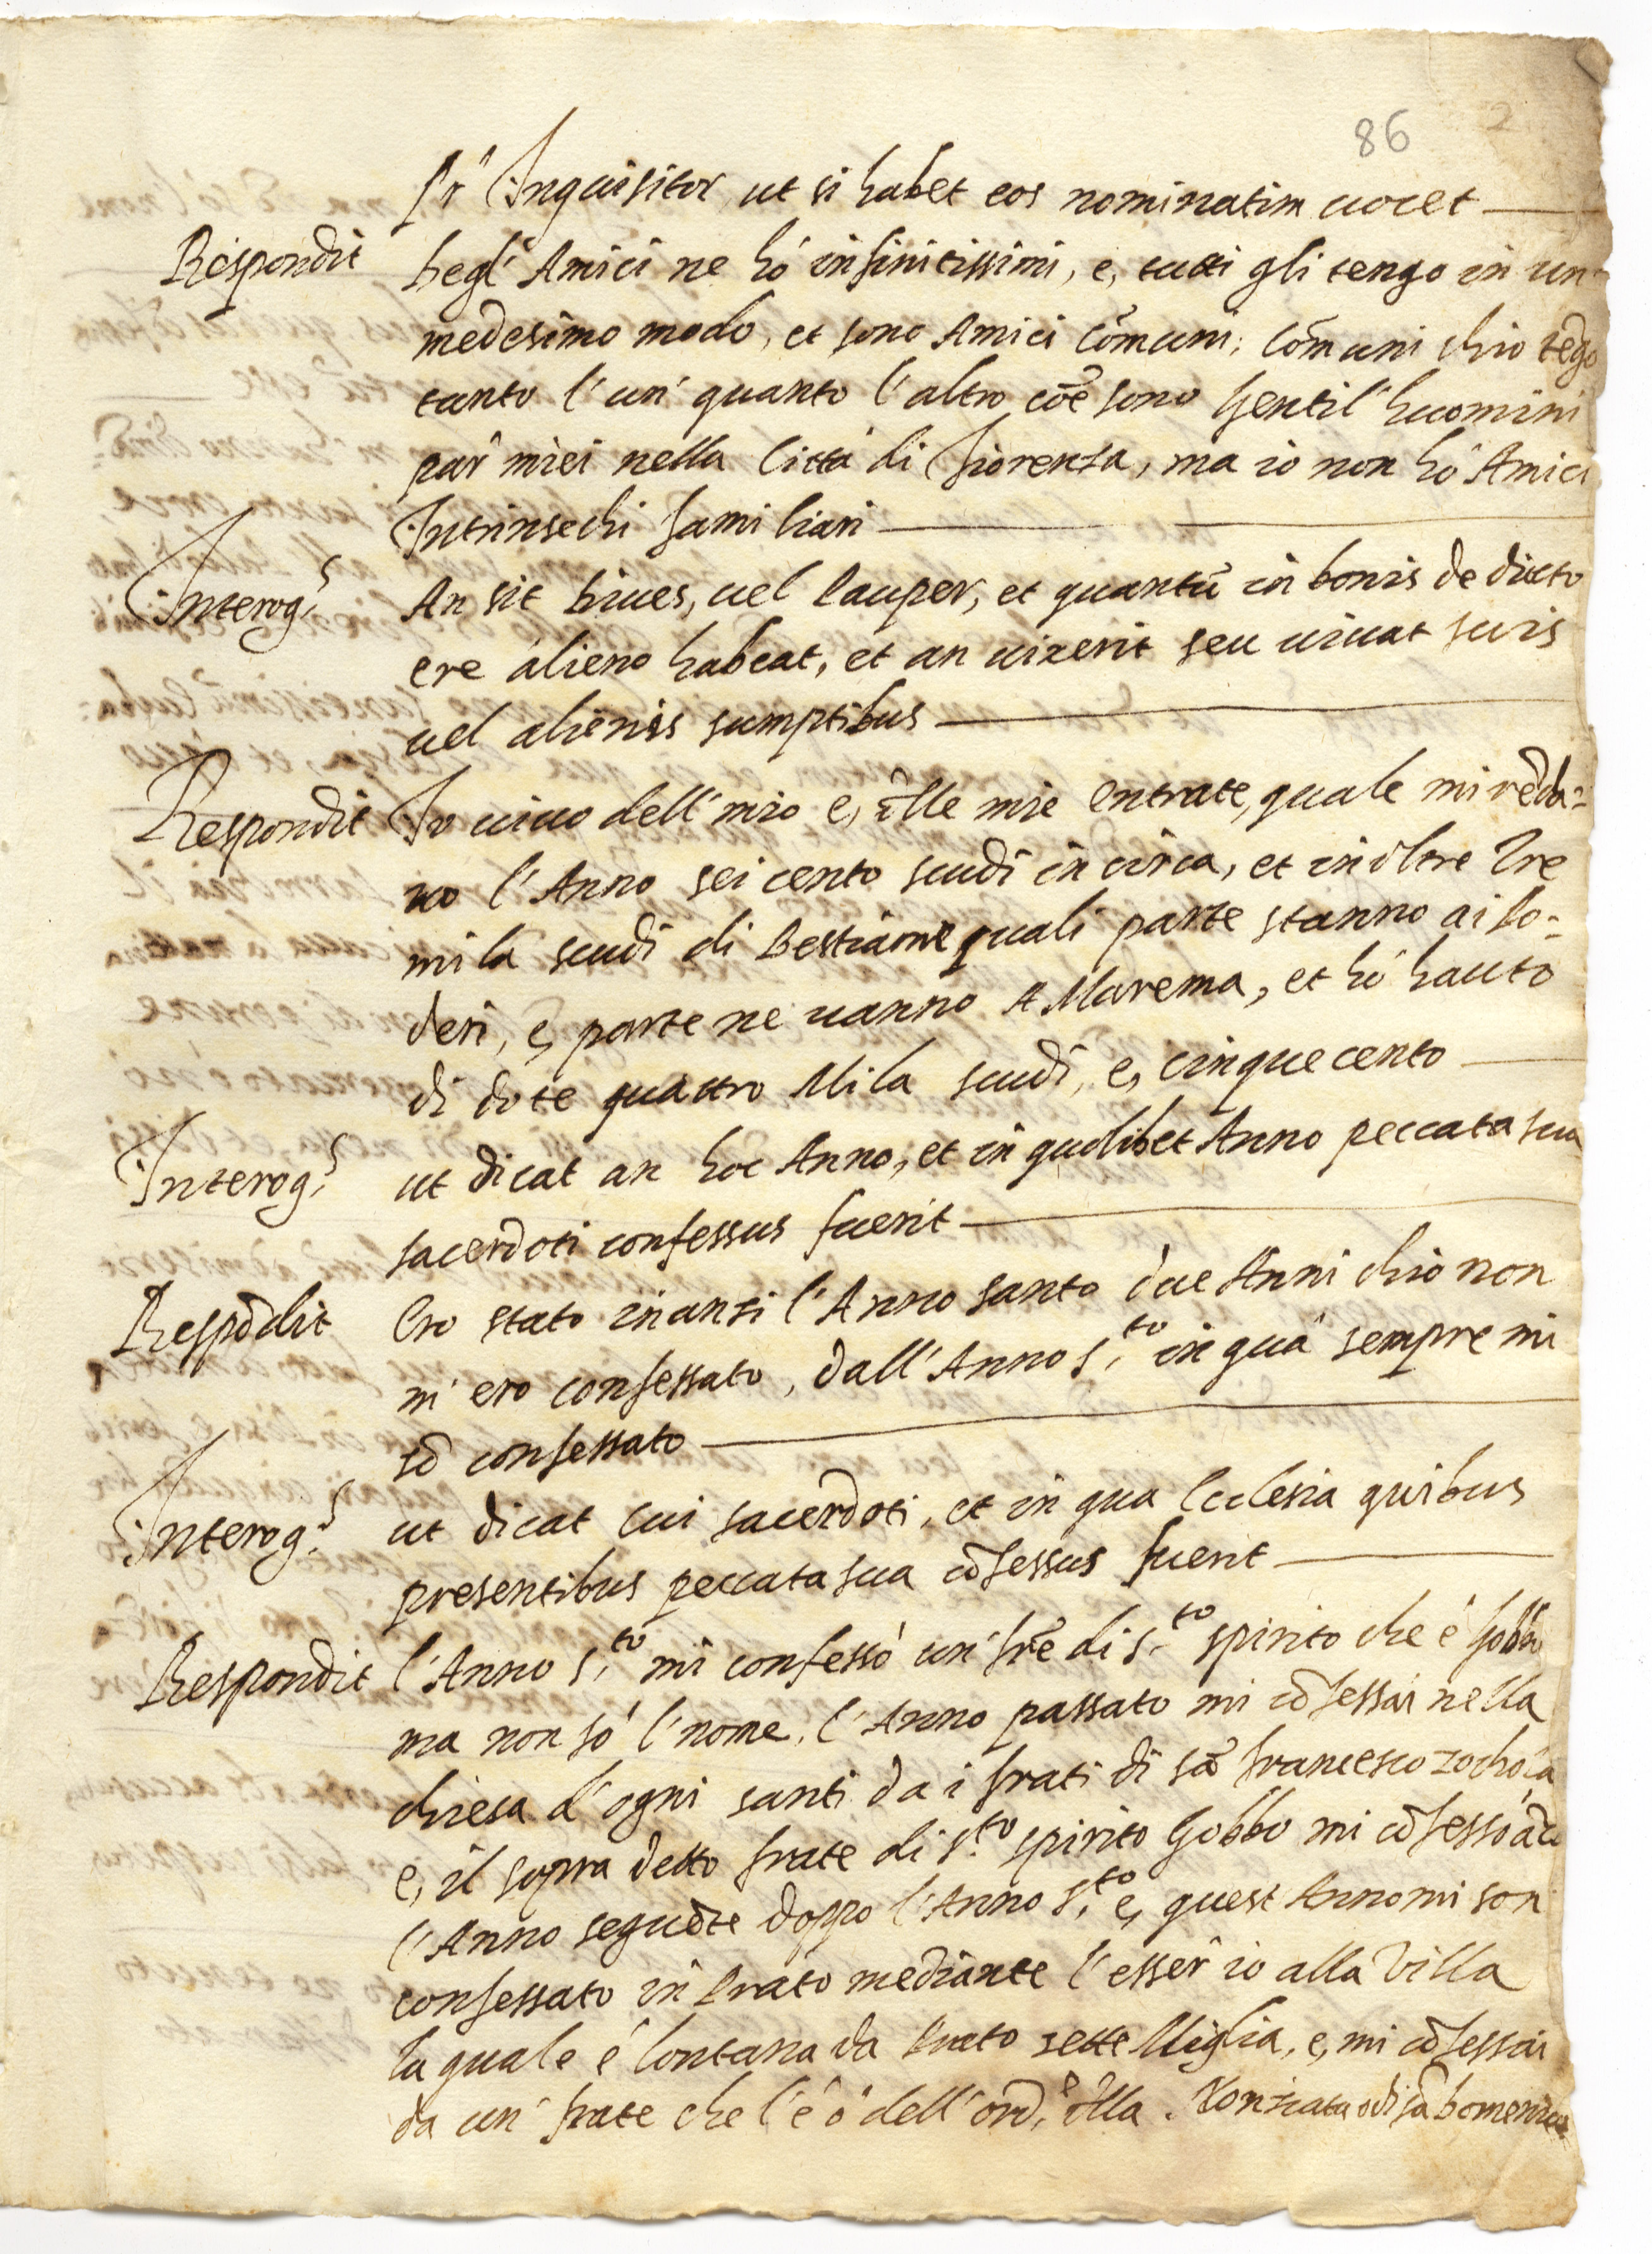 86 2
Pr Inquisitor, ut si habet eos nominatim vocet
Respondit Degl' Amici ne hò infinitissimi, e, tutti gli tengo in un
medesimo modo, et sono Amici cōmuni, Cōmuni chio tēgo
tanto l'un' quanto l'altro cōe sono Gentil' huomini
par miei nella Città di Fiorenza, ma io non hò Amici
Intrinsechi familiari
Interog.s An sit Dives, vel Pauper, et quantū in bonis de dicto
ere alieno habeat, et an vixerit seu vivat suis
vel alienis sumptibus
Respondit Io vivo dell' mio e, dlle mie Entrate, quale mi rēda=
no l'Anno sei cento scudi in circa, et in oltre Tre
mila scudi di Bestiame quali parte stanno ai Po=
deri, e, parte ne vanno A Marema, et hò hauto
di dote quattro Mila scudi, e, cinquecento
Interog.s ut dicat an hoc Anno, et in quolibet Anno peccata sua
sacerdoti confessus fuerit
Respōdit Ero stato inanzi l'Anno santo due Anni chio non
m' ero confessato, dall' Anno S.to in quà sempre mi
sō confessato
Interog.s ut dicat Cui sacerdoti, et in qua Ecclesia quibus
presentibus peccata sua cōfessus fuerit
Respondit l'Anno S.to mi confessò un' frē di S.to spirito che è Gobbo
ma non sò l'nome, l'Anno passato mi cōfessai nella
chiesa d'ogni santi da i frati di sā francesco
e, il sopra detto frate di S.to spirito Gobbo mi cōfessò
l'Anno seguēte doppo l'Anno S.to e, quest Anno mi son
confessato in Prato mediante l'esser io alla Villa
la quale è lontana da Prato sette Miglia, e, mi cōfessai
da un' frate che l'è ò dell' ord.e dlla Nontiata o di sā Domenico